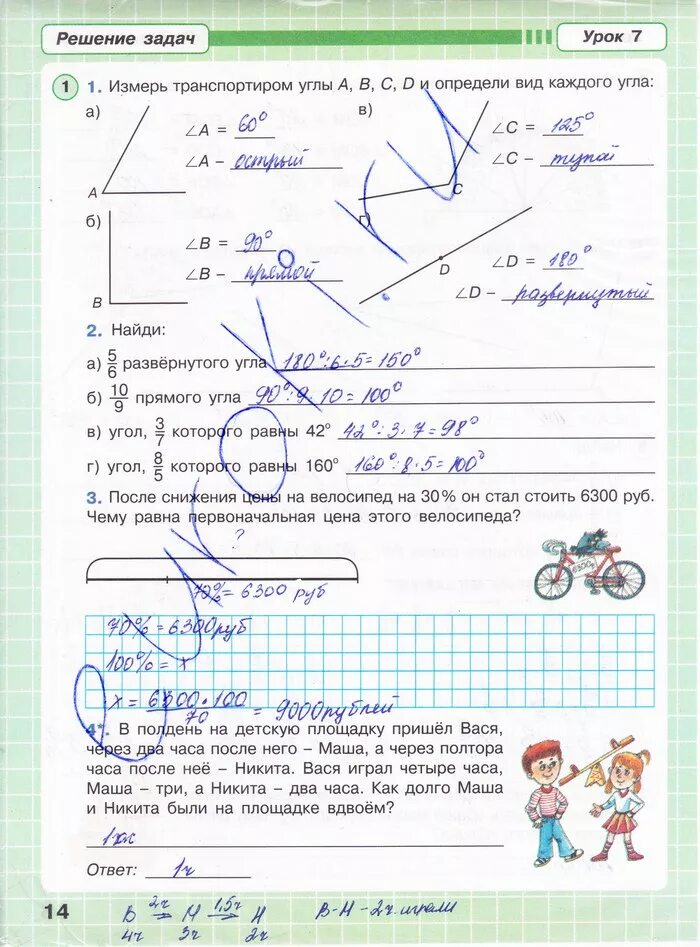 Решение задач
Урок 7
1 1. Измерь транспортиром углы A, B, C, D и определи вид каждого угла:
а)
∠A = 60°
∠A – острый
A
в)
∠C = 125°
∠C – тупой
C
б)
∠B = 90°
∠B – прямой
B
г)
∠D = 180°
∠D – развернутый
D
2. Найди:
а) 5/6 развёрнутого угла 180°:6·5=150°
б) 10/9 прямого угла 90°:9·10=100°
в) угол, 3/7 которого равны 42° 42°:3·7=98°
г) угол, 8/5 которого равны 160° 160°:8·5=100°
3. После снижения цены на велосипед на 30% он стал стоить 6300 руб.
Чему равна первоначальная цена этого велосипеда?
?
70%=6300 руб
6300р
70%=6300руб
100%=x
x = 6300·100/70 = 9000рублей
4*. В полдень на детскую площадку пришёл Вася,
через два часа после него – Маша, а через полтора
часа после неё – Никита. Вася играл четыре часа,
Маша – три, а Никита – два часа. Как долго Маша
и Никита были на площадке вдвоём?
Ответ: 1ч
14
В 2ч → М 1,5ч → Н В-Н-2ч.играли
4ч 3ч 2ч